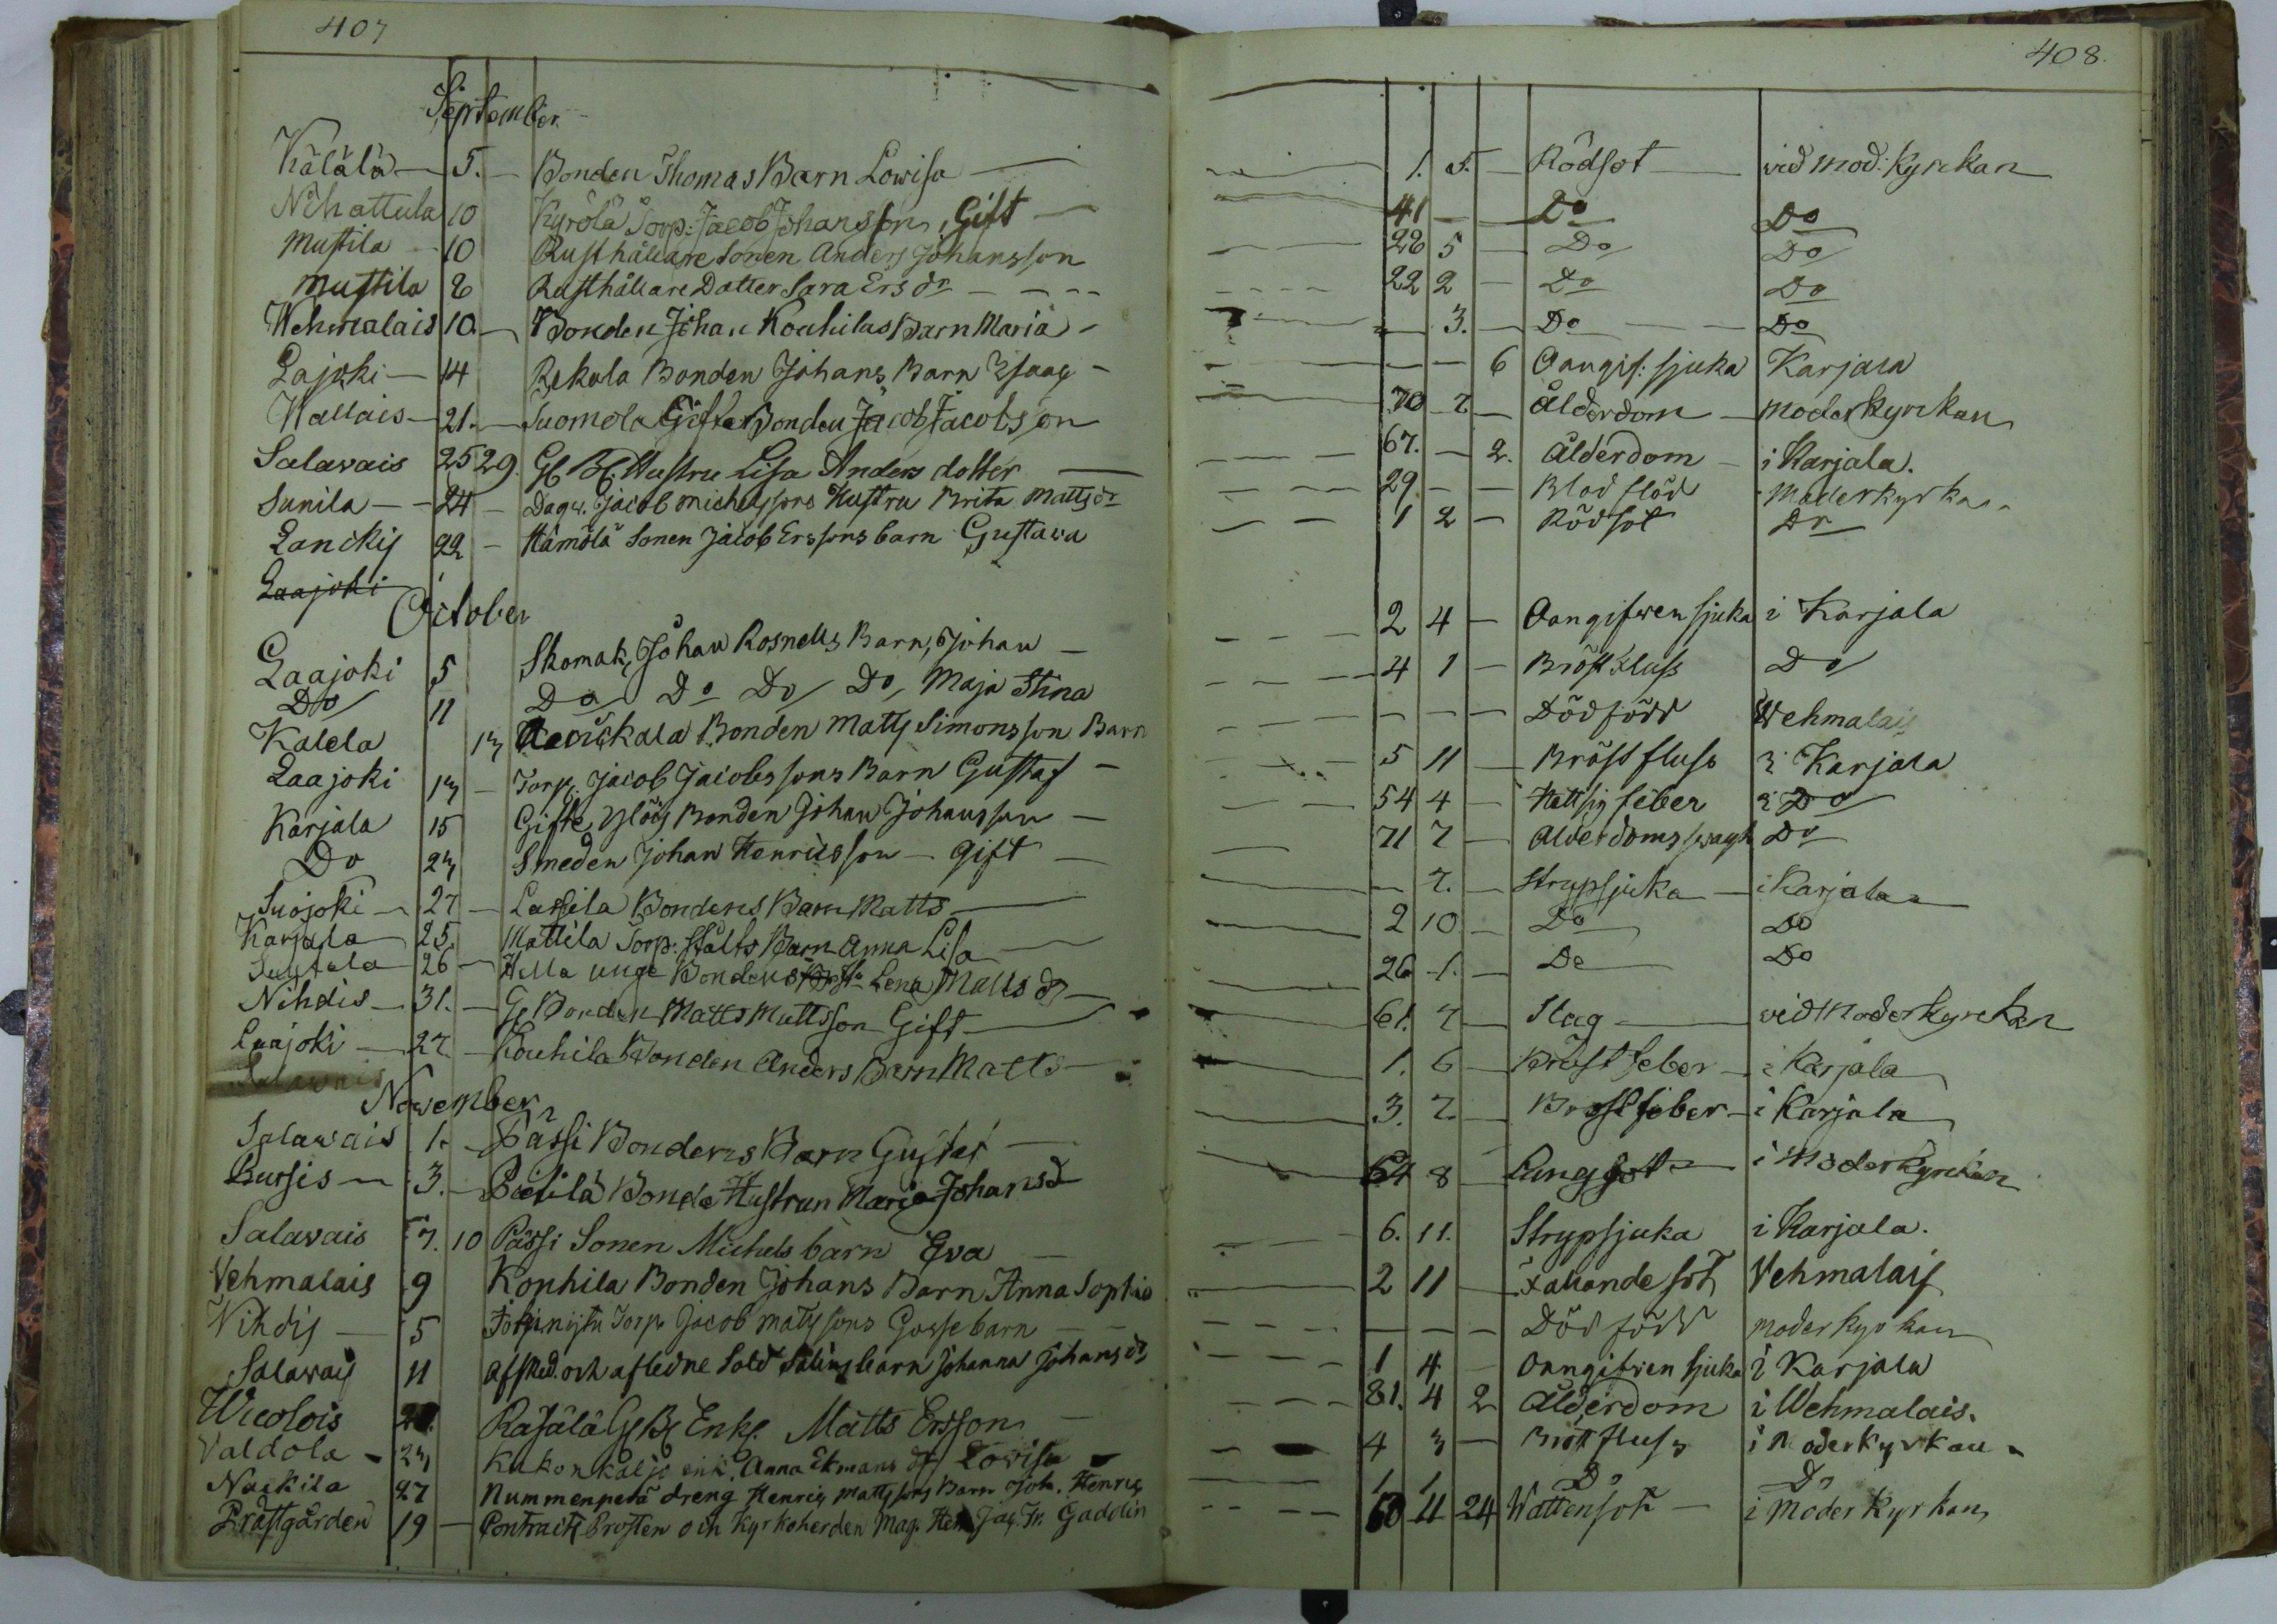 407
September
Kälälä 5. Bonden Thomas Barn Lowisa
Nihattula 10 Kyrölä Torp: Jacob Johansson, Gift
Mustila 10 Rusthållare Sonen Anders Johansson
Mustila 8 Rusthållare Dotter Sara Ersdr
Wehmalais 10. Bonden Johan Kouhilas Barn Maria
Lajoki 14 Rekola Bonden Johans Barn Isaac
Wallais 21. Suomola Gifte Bonden Jacob Jacobsson
Salavais 25 29. Gl Hustru Lisa Anders dotter
Sunila 24 Dagw. Jacob Michelssons Hustru Brita Mattsdr
Lanckij 22 Hämölä Sonen Jacob Erssons barn Gustava
Laajoki
October
Laajoki 5 Skomak, Johan Rosnells Barn, Johan
Do 11 Do Do Do Do Maja Stina
Kalela 13 Bonden Matts Simonsson Barn
Laajoki 13 Torp. Jacob Jacobssons Barn Gustaf
Karjala 15 Gifte Bonden Johan Johansson
Do 23 Smeden Johan Henricsson Gift
Suojoki 27 Lassila Bondens Barn Matts
Karjala 25. Mattila Torp. Stålts Barn Anna Lisa
26 Hella unge Bondens Lena Mattsdr
Nihdis 31. G Bonden Matts Mattsson Gift
Laajoki 27. Kouhila Bonden Anders Barn Matts
November
Salawais 1. Pässi Bondens Barn Gustaf
Bursis 3. Bonde Hustrun Maria Johansd
Salavais 7. 10 Pässi Sonen Michels barn Eva
Vehmalais 9 Kouhila Bonden Johans Barn Anna Sophia
Nihdis 5 Torp. Jacob Matssons Gosse barn
Salavais 11 Afsked. och afledne Sold barn Johanna Johansdr
Wicolois Rajälä Enkl. Matts Ersson
Valdola 23 Kukonkaljo enk. Anna Ekmans dr Lovisa
Nackila 27 Nummenpetä dreng Henric Mattssons Barn Joh. Henric
Prästgården 19 Contracts Prosten och Kyrkoherden Mag. Gaddlin
408.
1. 5. Rödsot vid Mod: kyrckan
41 Do Do
28 5 Do Do
22 2 Do Do
3. Do Do
6 Oangif: sjuka Karjala
70 7. Ålderdom Moderkyrckan
67. 2. Ålderdom i Karjala.
29 Blodflöd Moderkyrka
1 2 Rödsot Do
2 4 Oangifwen sjuka i Karjala
4 1 Bröstfluss Do
Dödfödd Wehmalais
5 11 Bröstfluss i Karjala
54 4 Hettsig feber i Do
71 7 Alderdoms swagh Do
7. Strypsjuka i Karjala
2 10 Do Do
26 1. Do Do
61. 7 Slag vid Moderkyrckan
1. 6 Bröst feber i Karjala
3. 7. Bröstfeber i Karjala
64 8 Lungsot i Moderkyrckan
6. 11. Strypsjuka i Karjala.
2 11 Fallande sot Vehmalais
Död född moderkyrkan
1 4 Oangifven sjuka i Karjala
81. 4 2 Ålderdom i Wehmalais.
4 3 Bröstfluss i Moderkyrkan
1 1 Do Do
60 11 24 Wattensot i Moderkyrkan